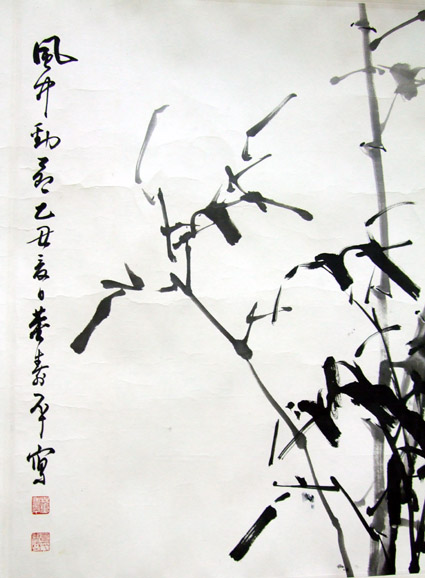 風中勁節乙丑夏日董壽平寫